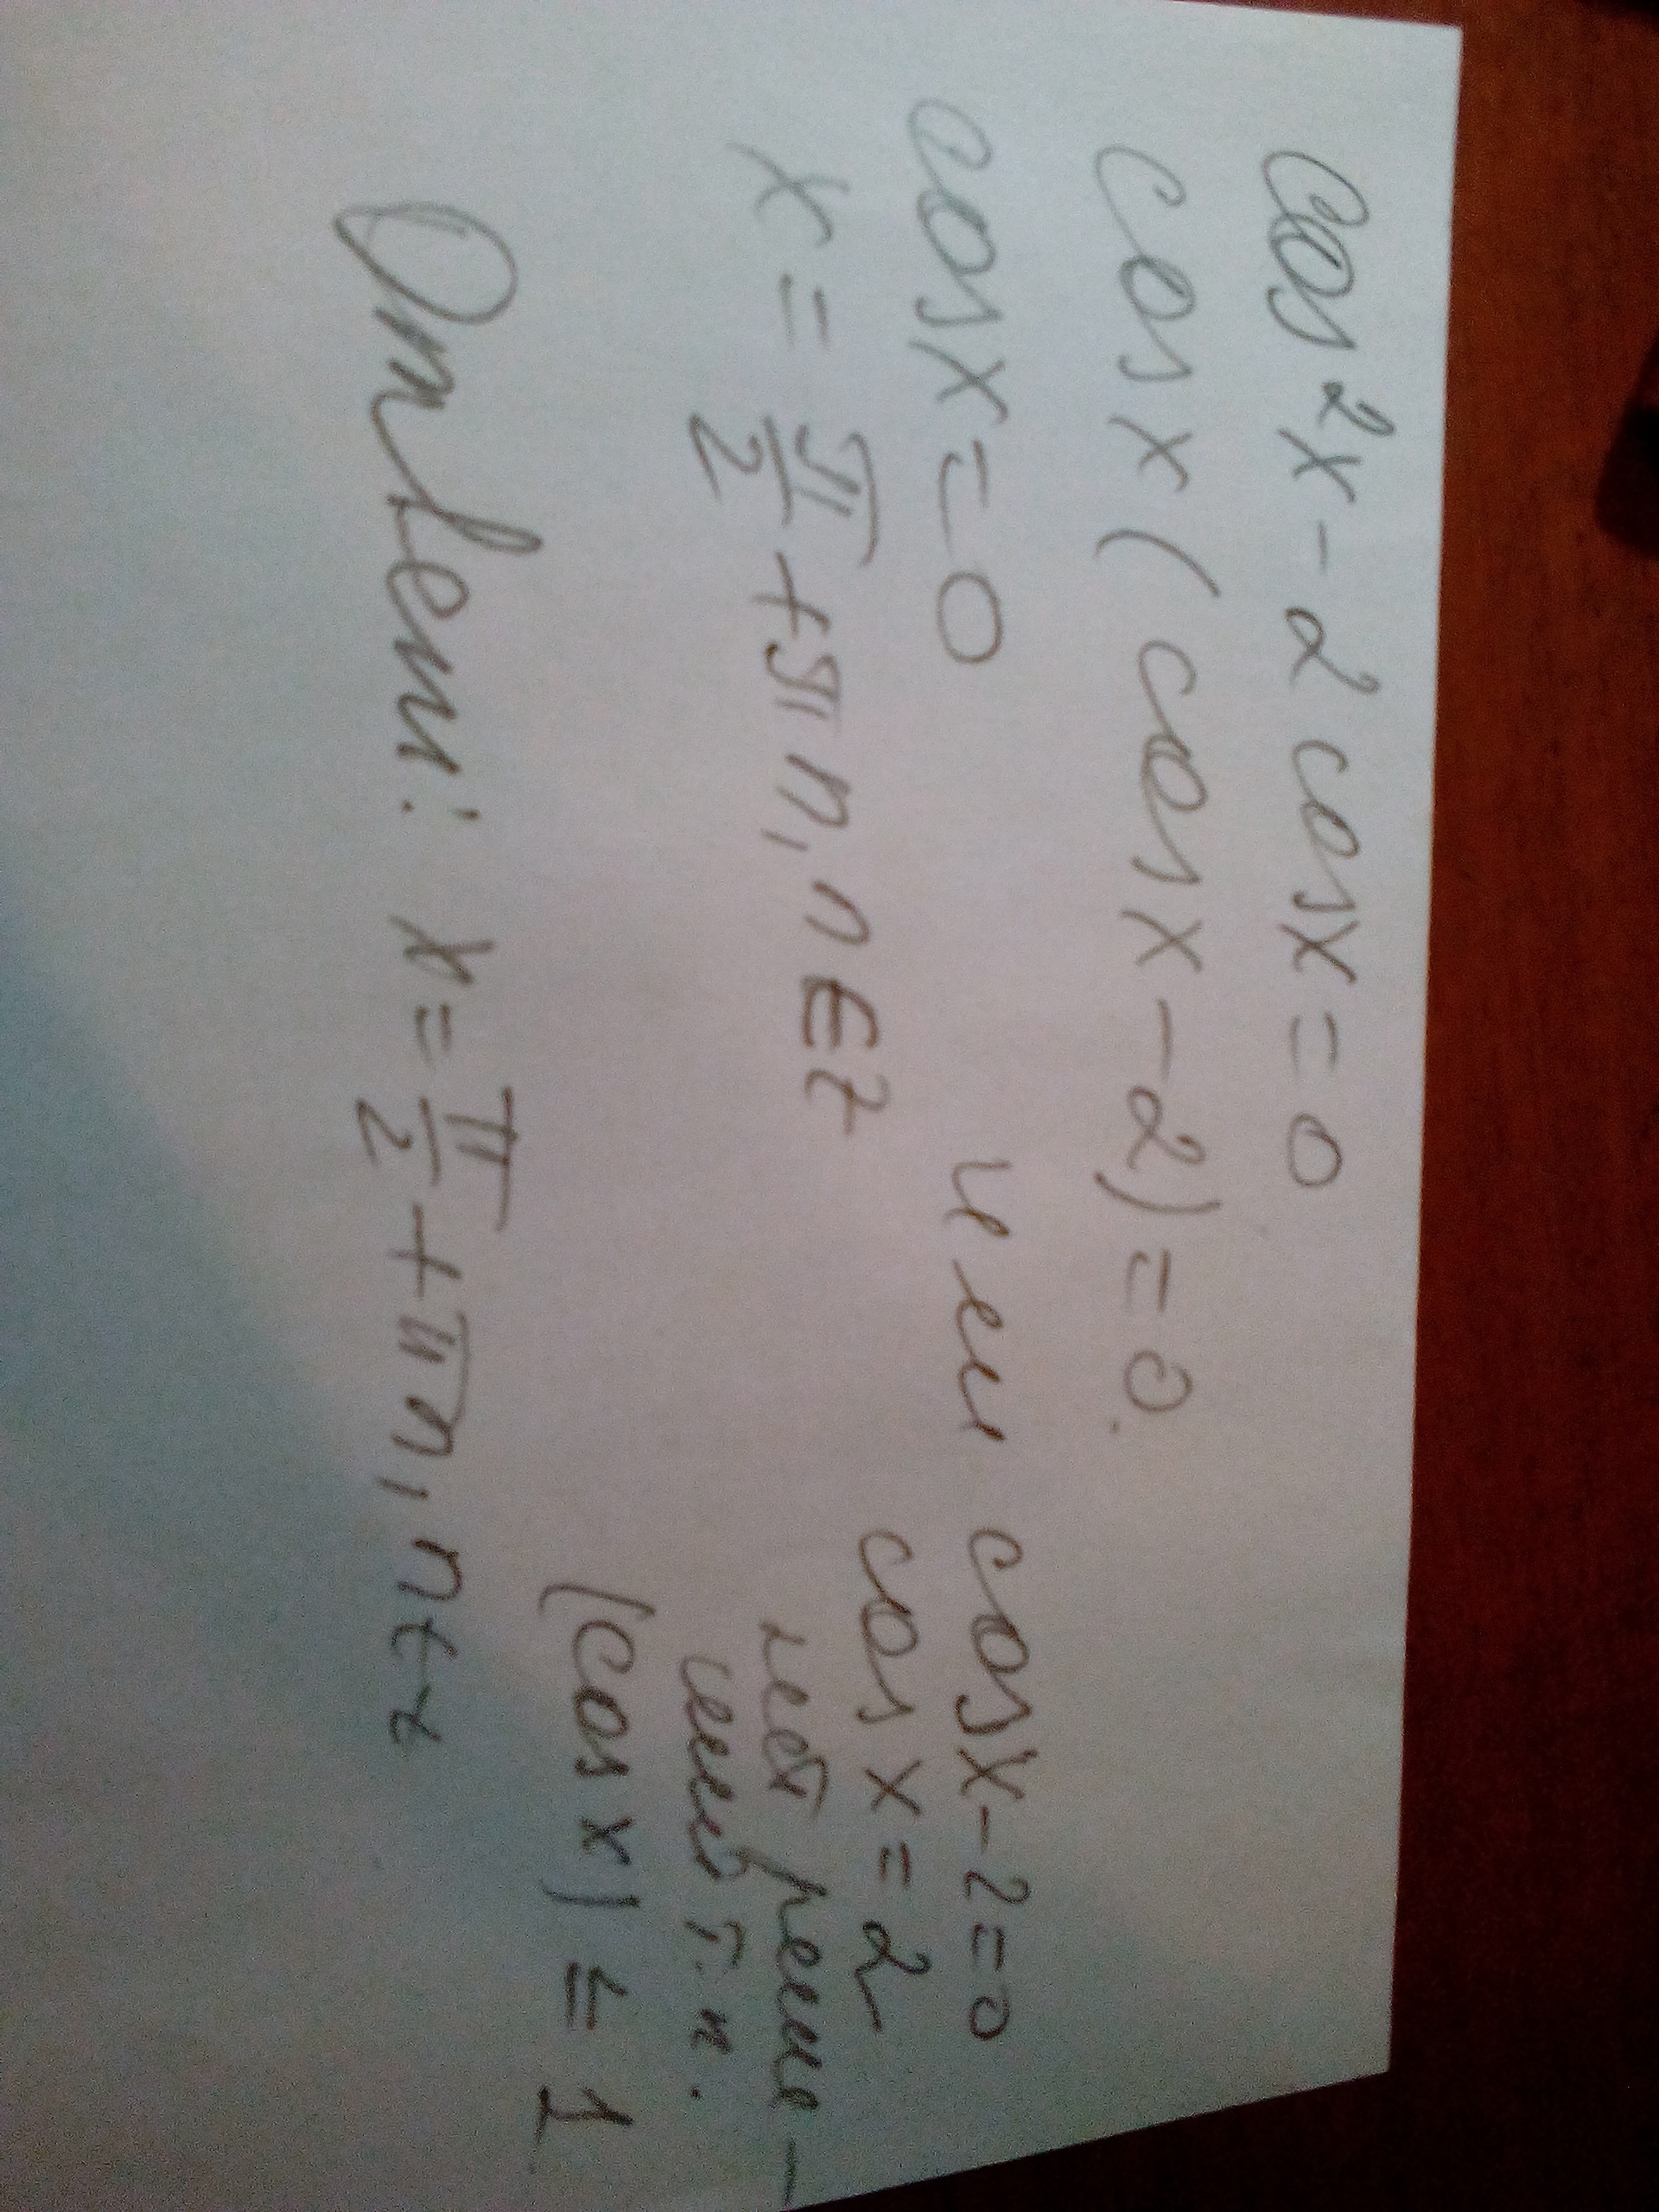 cos²x - 2 cosx = 0
cosx (cosx - 2) = 0.
cosx = 0 или cosx - 2 = 0
cosx = 2
x = π/2 + πn, n ∈ Z
нет реше-
ний т.к.
|cosx| ≤ 1
Ответ: x = π/2 + πn, n ∈ z